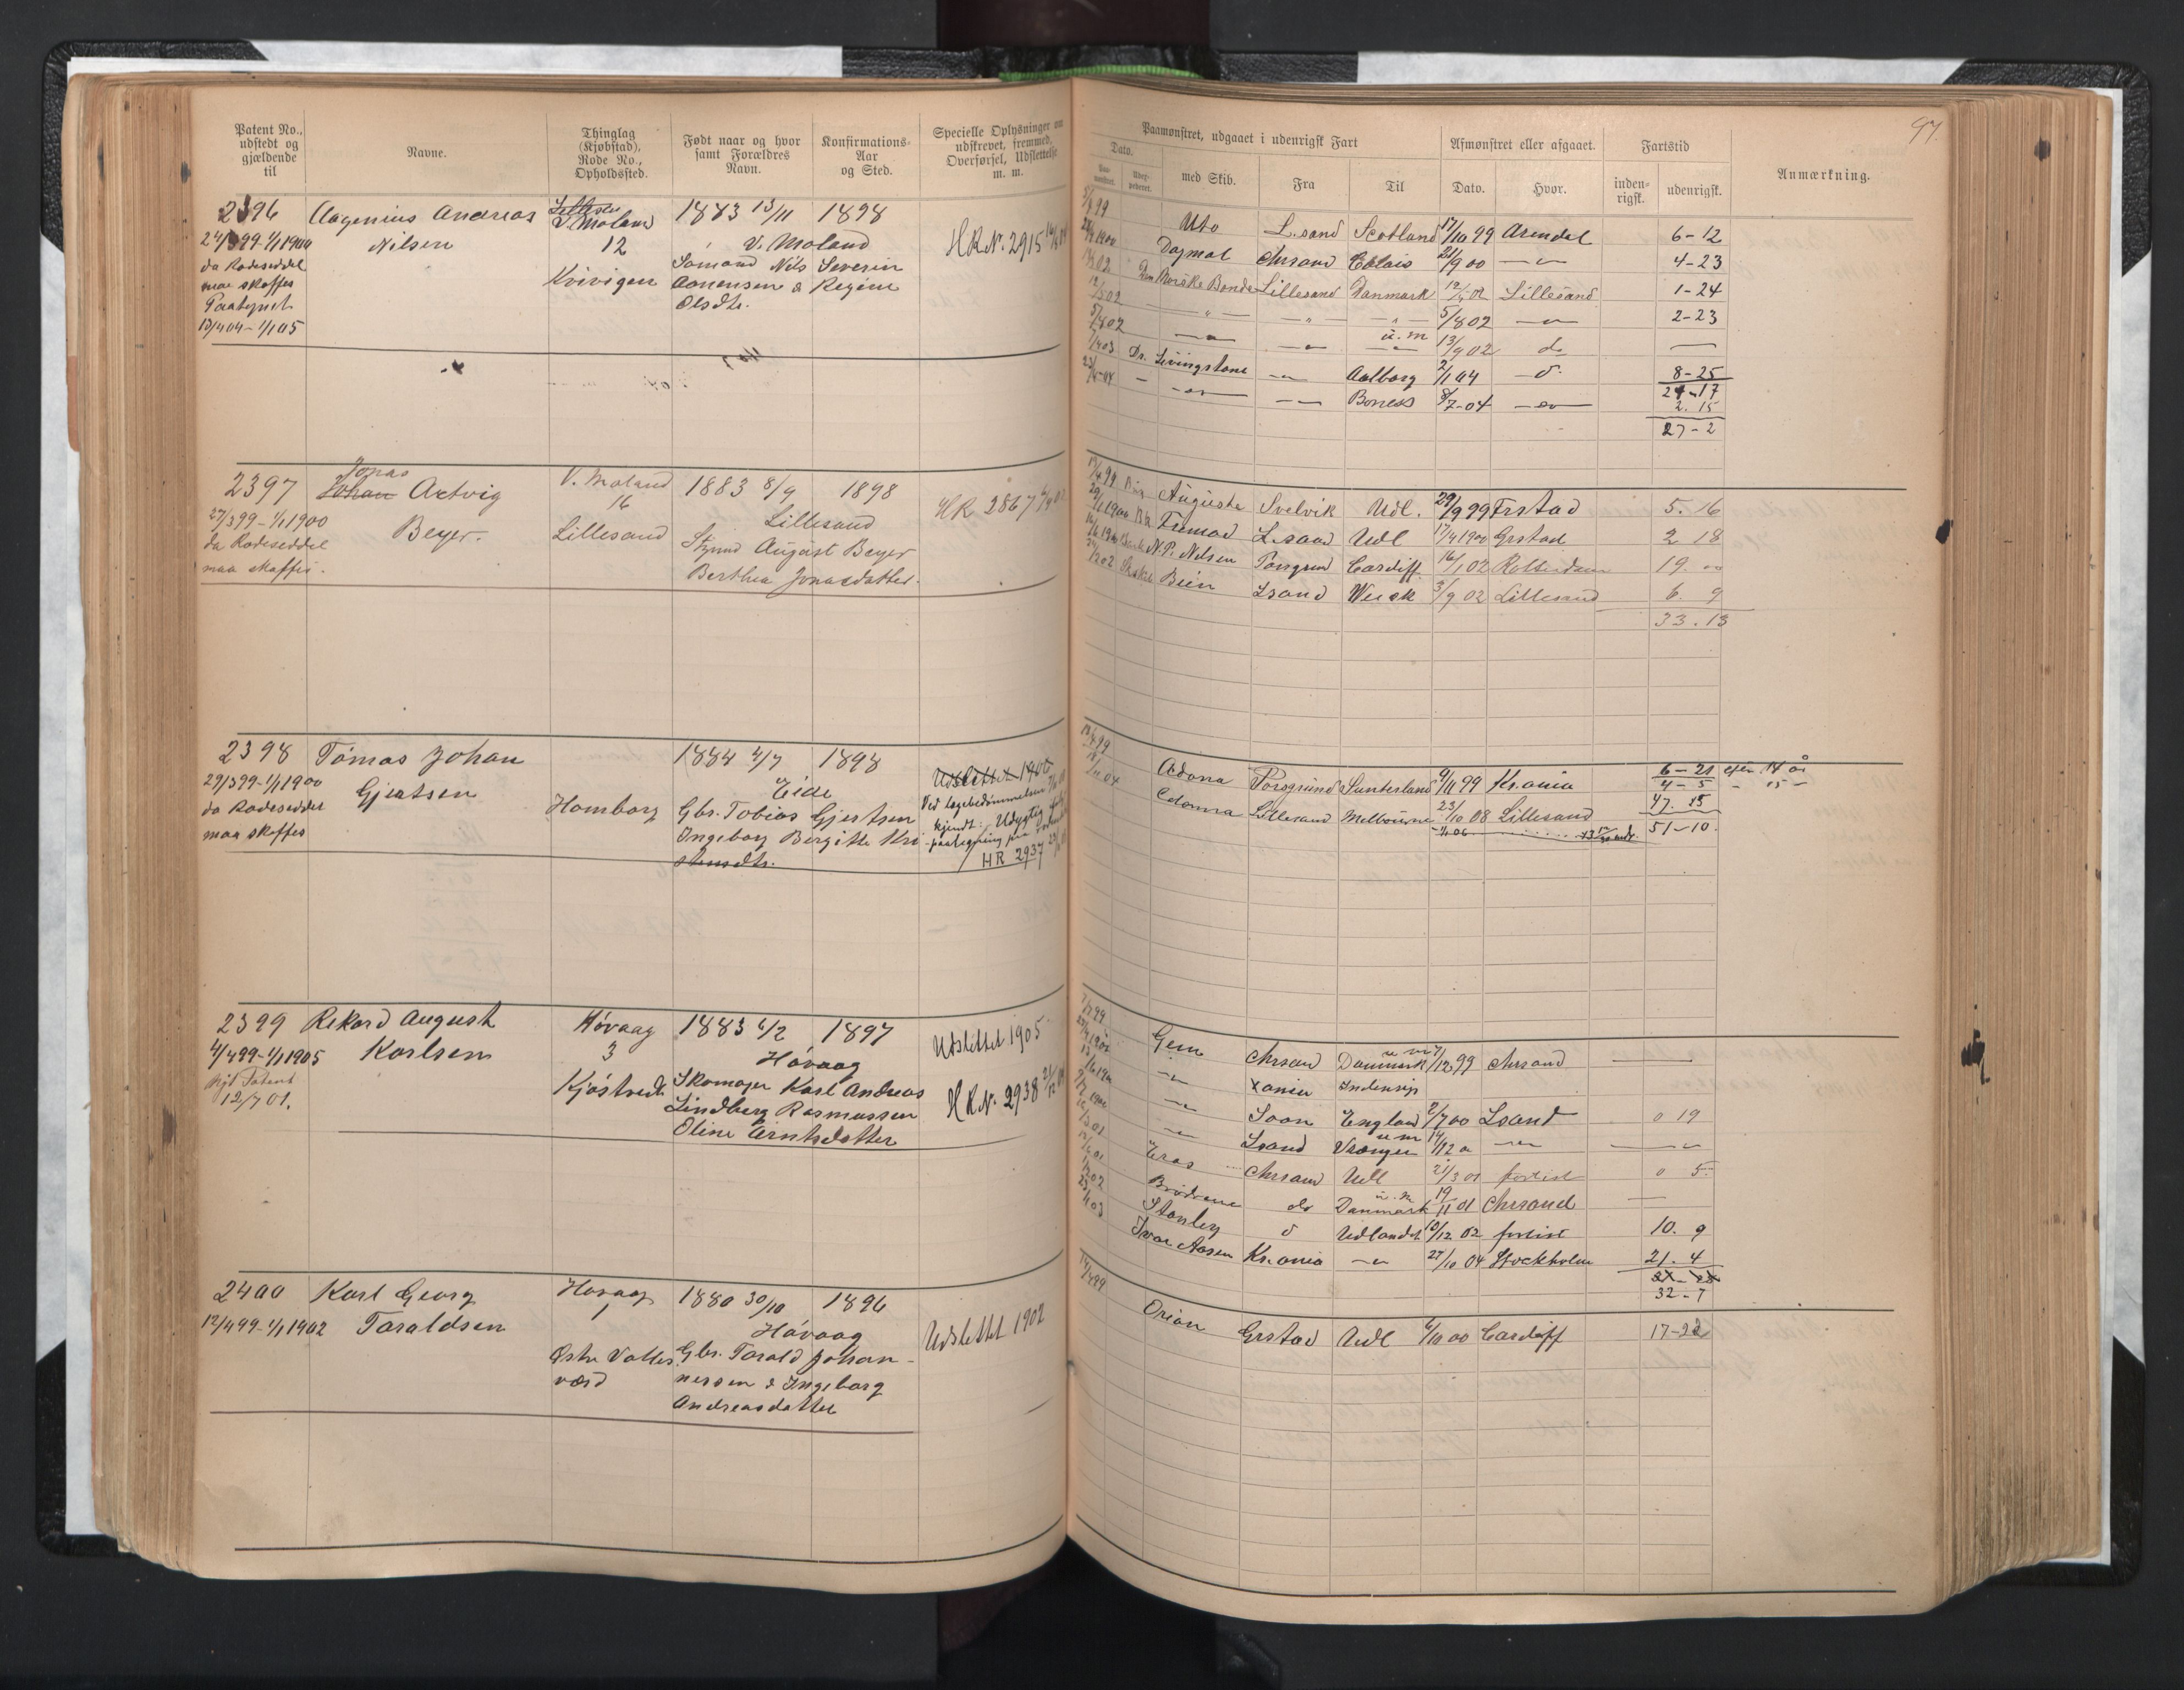 Patent No., udstedt og gjældende til
Navne.
Thinglag (Kjøbstad), Rode No., Opholdssted.
Født naar og hvor samt Forældres Navn.
Konfirmations-Aar og Sted.
Specielle Oplysninger om udskrevet, fremmed, Overførsel, Udslettelse m. m.
2396 Aagenius Andreas V. Moland 1883 13/11 1898
24/3 99-1/1 1900 Nilsen 12 V. Moland HRN. 2915
da Rodeseddel Sømand Nils Severin
maa skaffes Kvivigen Aanensen & Regine
Paategnet Olsdtr.
13/4 04-1/1 05
2397 Jonas V. Moland 1883 8/9 1898 HR 2867
Johan Artvig 16 Lillesand
27/3 99-1/1 1900 Beyer. Lillesand Styrmd August Beyer
da Rodeseddel Berthea Jonasdatter.
maa skaffes.
2398 Tomas Johan 1884 4/7 1898 Udslettet 1900
29/3 99-1/1 1900 Gjertsen Eide Ved lægebedømmelsen
da Rodeseddel Homborg Gbr. Tobias Gjertsen kjendt: Udygtig
maa skaffes Ingeborg Bergitte Kri- paategning paa
stensdtr. HR 2937
2399 Rikard August Høvaag 1883 6/2 1897 Udslettet 1905
4/4 99-1/1 1905 Karlsen 3 Høvaag
Nyt Patent Kjøstvedt Skomager Karl Andreas HRN. 2938
12/7 01. Lindberg Rasmussen
Oline Arntsdatter
2400 Karl Georg Høvaag 1880 30/10 1896 Udslettet 1902
12/4 99-1/1 1902 Taraldsen 1 Høvaag
Østre Valles Gbr. Tarald Johan-
værd nessen & Ingeborg
Andreasdatter
97.
Paamønstret, udgaaet i udenrigsk Fart
Afmønstret eller afgaaet.
Fartstid
Anmærkning.
Dato.
med Skib.
Fra
Til
Dato.
Hvor.
inden-rigsk.
udenrigsk.
Uto L.sand Scotland 17/10 99 Arendal 6-12
Dagmal Chrsand Calais 21/9 00 -"- 4-23
Den Norske Bonde Lillesand Danmark 12/5 02 Lillesand 1-24
12/5 02 -"- -"- -"- 5/8 02 -"- 2-23
5/8 02 -"- -"- u.m 13/9 02 do —
Dr. Levingstone -"- Aalborg 2/1 04 -d- 8-25
24-17
- -"- -"- Boness 8/7-04 -"- 2.15
27-2
Augusta Svelvik Udl. 29/9 99 Frstad 5.16
Fremad L.sand Udl 17/4 1900 Grstad 2 18
Bark N.P. Nilsen Porsgrund Cardiff 16/1 02 Rotterdam 19.00
Bien Lsand Wisck 3/9 02 Lillesand 6. 9
33.13
Adona Porsgrund Sunterland 9/11 99 Kr.ania 6-21 efter 14 år
4-5 - 15 -
Edonna Lillesand Melbourne 23/10 08 Lillesand 47.15
51-10.
Gem Chrsand Danmark u m 7/12 99 Chrsand —
-"- Xania Indenrigs
-"- Soon England 2/7 00 Lsand 0 19
-"- Lsand Vrængen u m 14/12 0 -"- —
Eros Chrsand Udl 21/3 01 forlist 0 5
Brødrene do Danmark u.m 19/11 01 Chrsand —
Stanley d Udlandet 10/12 02 forlist 10. 9
Ivar Aasen Kr.ania -"- 27/10 04 Stockholm 21.4
32-7
Orion Grstad Udl 4/10 00 Cardiff 17-22